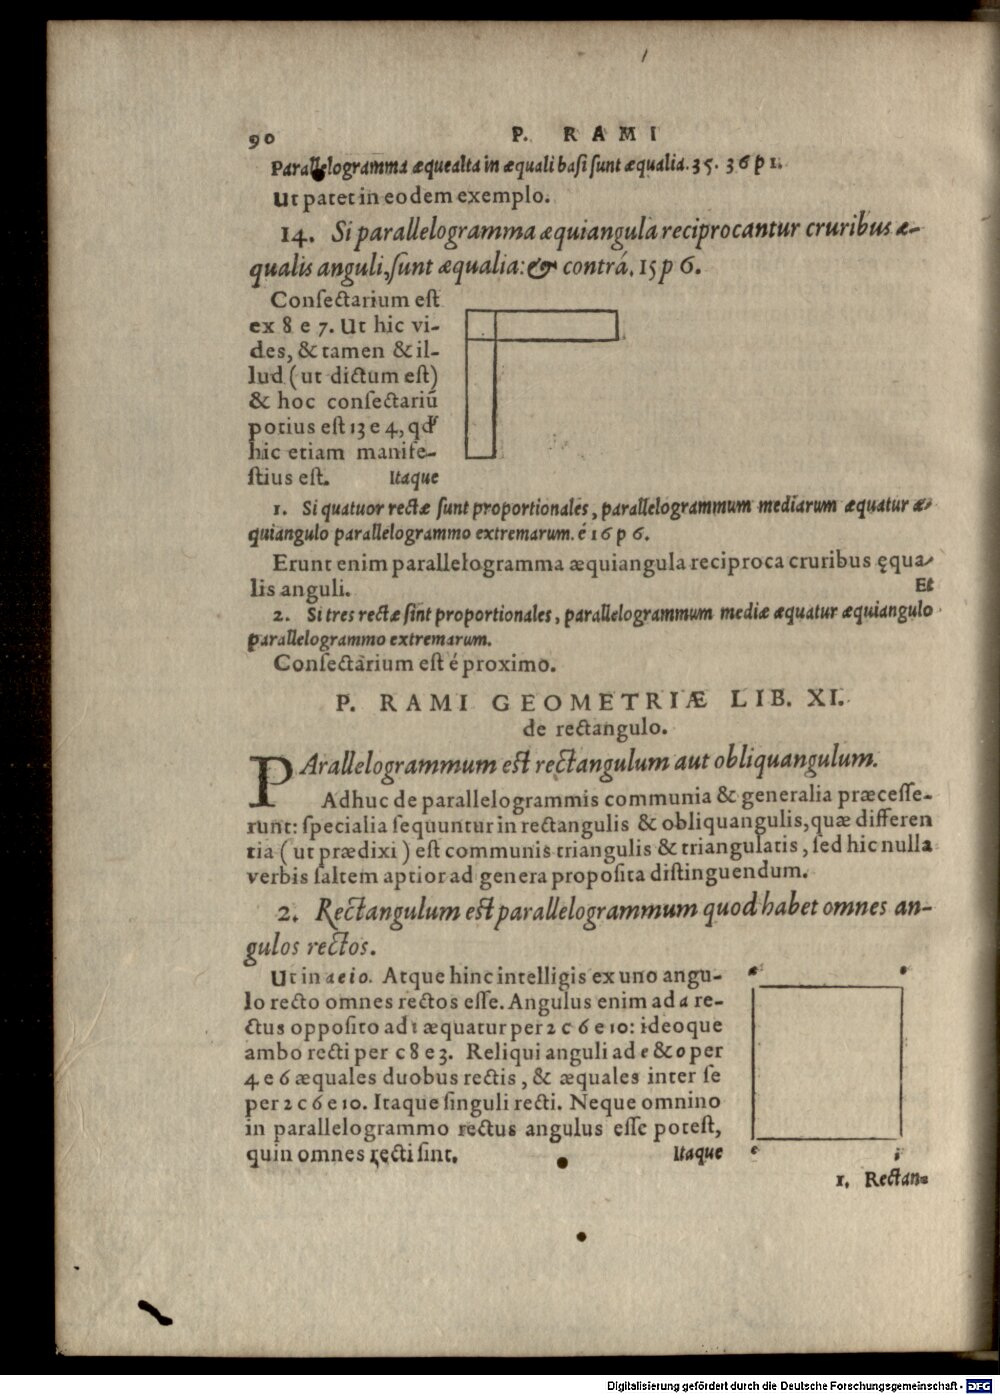 90 P. RAMI
Parallelogramma æquealta in æquali basi sunt æqualia. 35. 36 p 1.
Ut patet in eodem exemplo.
14. Si parallelogramma æquiangula reciprocantur cruribus æ-
qualis anguli, sunt æqualia: & contrá. 15 p 6.
Consectarium est
ex 8 e 7. Ut hic vi-
des, & tamen & il-
lud (ut dictum est)
& hoc consectariũ
potius est 13 e 4, qď
hic etiam manife-
stius est. Itaque
1. Si quatuor rectæ sunt proportionales, parallelogrammum mediarum æquatur æ-
quiangulo parallelogrammo extremarum. é 16 p 6.
Erunt enim parallelogramma æquiangula reciproca cruribus ęqua-
lis anguli. Et
2. Si tres rectæ sint proportionales, parallelogrammum mediæ æquatur æquiangulo
parallelogrammo extremarum.
Consectarium est é proximo.
P. RAMI GEOMETRIÆ LIB. XI.
de rectangulo.
PArallelogrammum est rectangulum aut obliquangulum.
Adhuc de parallelogrammis communia & generalia præcesse-
runt: specialia sequuntur in rectangulis & obliquangulis, quæ differen
tia (ut prædixi) est communis triangulis & triangulatis, sed hic nulla
verbis saltem aptior ad genera proposita distinguendum.
2. Rectangulum est parallelogrammum quod habet omnes an-
gulos rectos.
Ut in aeio. Atque hinc intelligis ex uno angu-
lo recto omnes rectos esse. Angulus enim ad a re-
ctus opposito ad i æquatur per 2 c 6 e 10: ideoque
ambo recti per c 8 e 3. Reliqui anguli ad e & o per
4 e 6 æquales duobus rectis, & æquales inter se
per 2 c 6 e 10. Itaque singuli recti. Neque omnino
in parallelogrammo rectus angulus esse potest,
quin omnes recti sint. Itaque
a o
e i
1. Rectan-
Digitalisierung gefördert durch die Deutsche Forschungsgemeinschaft - DFG